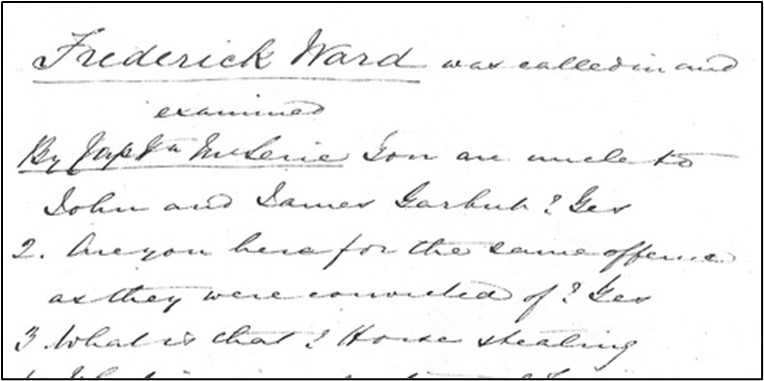 Frederick Ward was called in and
examined
By Captn McLerie You are uncle to
John and James Garbutt? Yes
2. Are you here for the same offence
as they were convicted of? Yes
3 What is that? Horse stealing